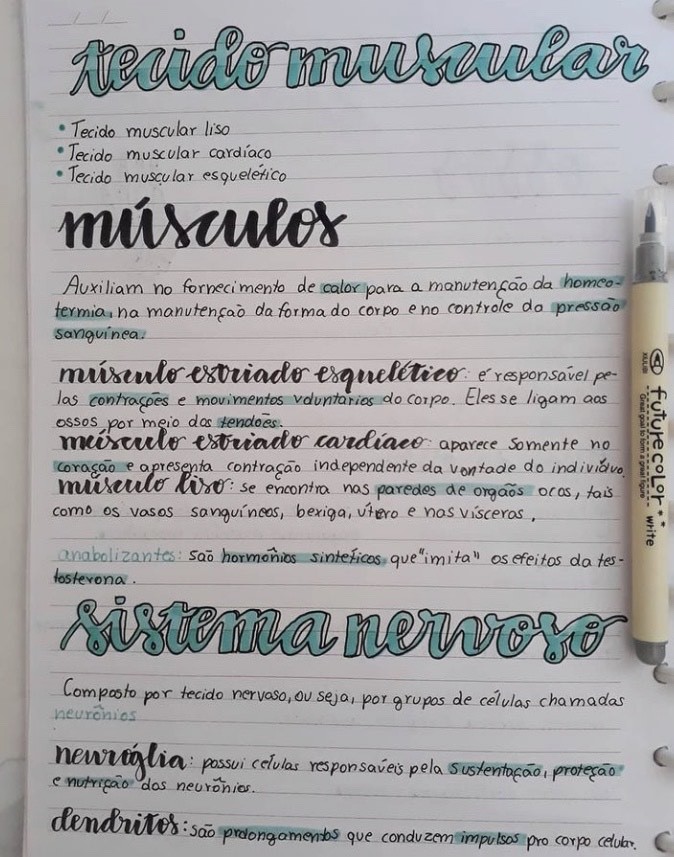 tecido muscular
• Tecido muscular liso
• Tecido muscular cardíaco
• Tecido muscular esquelético
músculos
Auxiliam no fornecimento de calor para a manutenção da homeo-
termia, na manutenção da forma do corpo e no controle da pressão
sanguínea.
músculo estriado esquelético: é responsável pe-
las contrações e movimentos voluntários do corpo. Eles se ligam aos
ossos por meio dos tendões.
músculo estriado cardíaco: aparece somente no
coração e apresenta contração independente da vontade do indivíduo.
músculo liso: se encontra nas paredes de orgãos ocos, tais
como os vasos sanguíneos, bexiga, útero e nas vísceras.
anabolizantes: são hormônios sintéticos que "imita" os efeitos da tes-
tosterona.
sistema nervoso
Composto por tecido nervoso, ou seja, por grupos de células chamadas
neurônios
neuróglia: possui células responsáveis pela sustentação, proteção
e nutrição dos neurônios.
dendritos: são prolongamentos que conduzem impulsos pro corpo celular.
futurecolor
Great goal to form a great figure
write